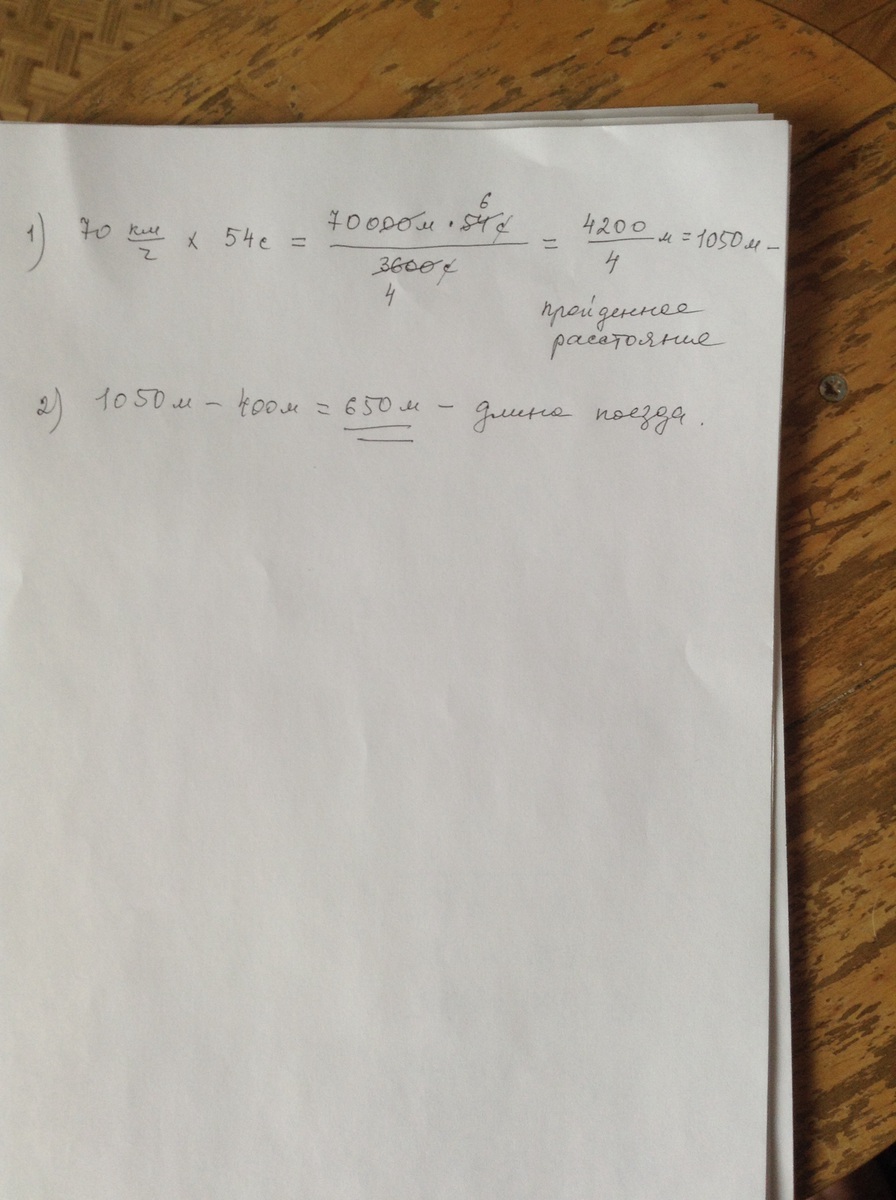 1) 70 км/ч × 54с = 70000м · 54с 6 / 3600с 4 = 4200/4 м = 1050м –
пройденное
расстояние
2) 1050м – 400м = 650м – длина поезда.